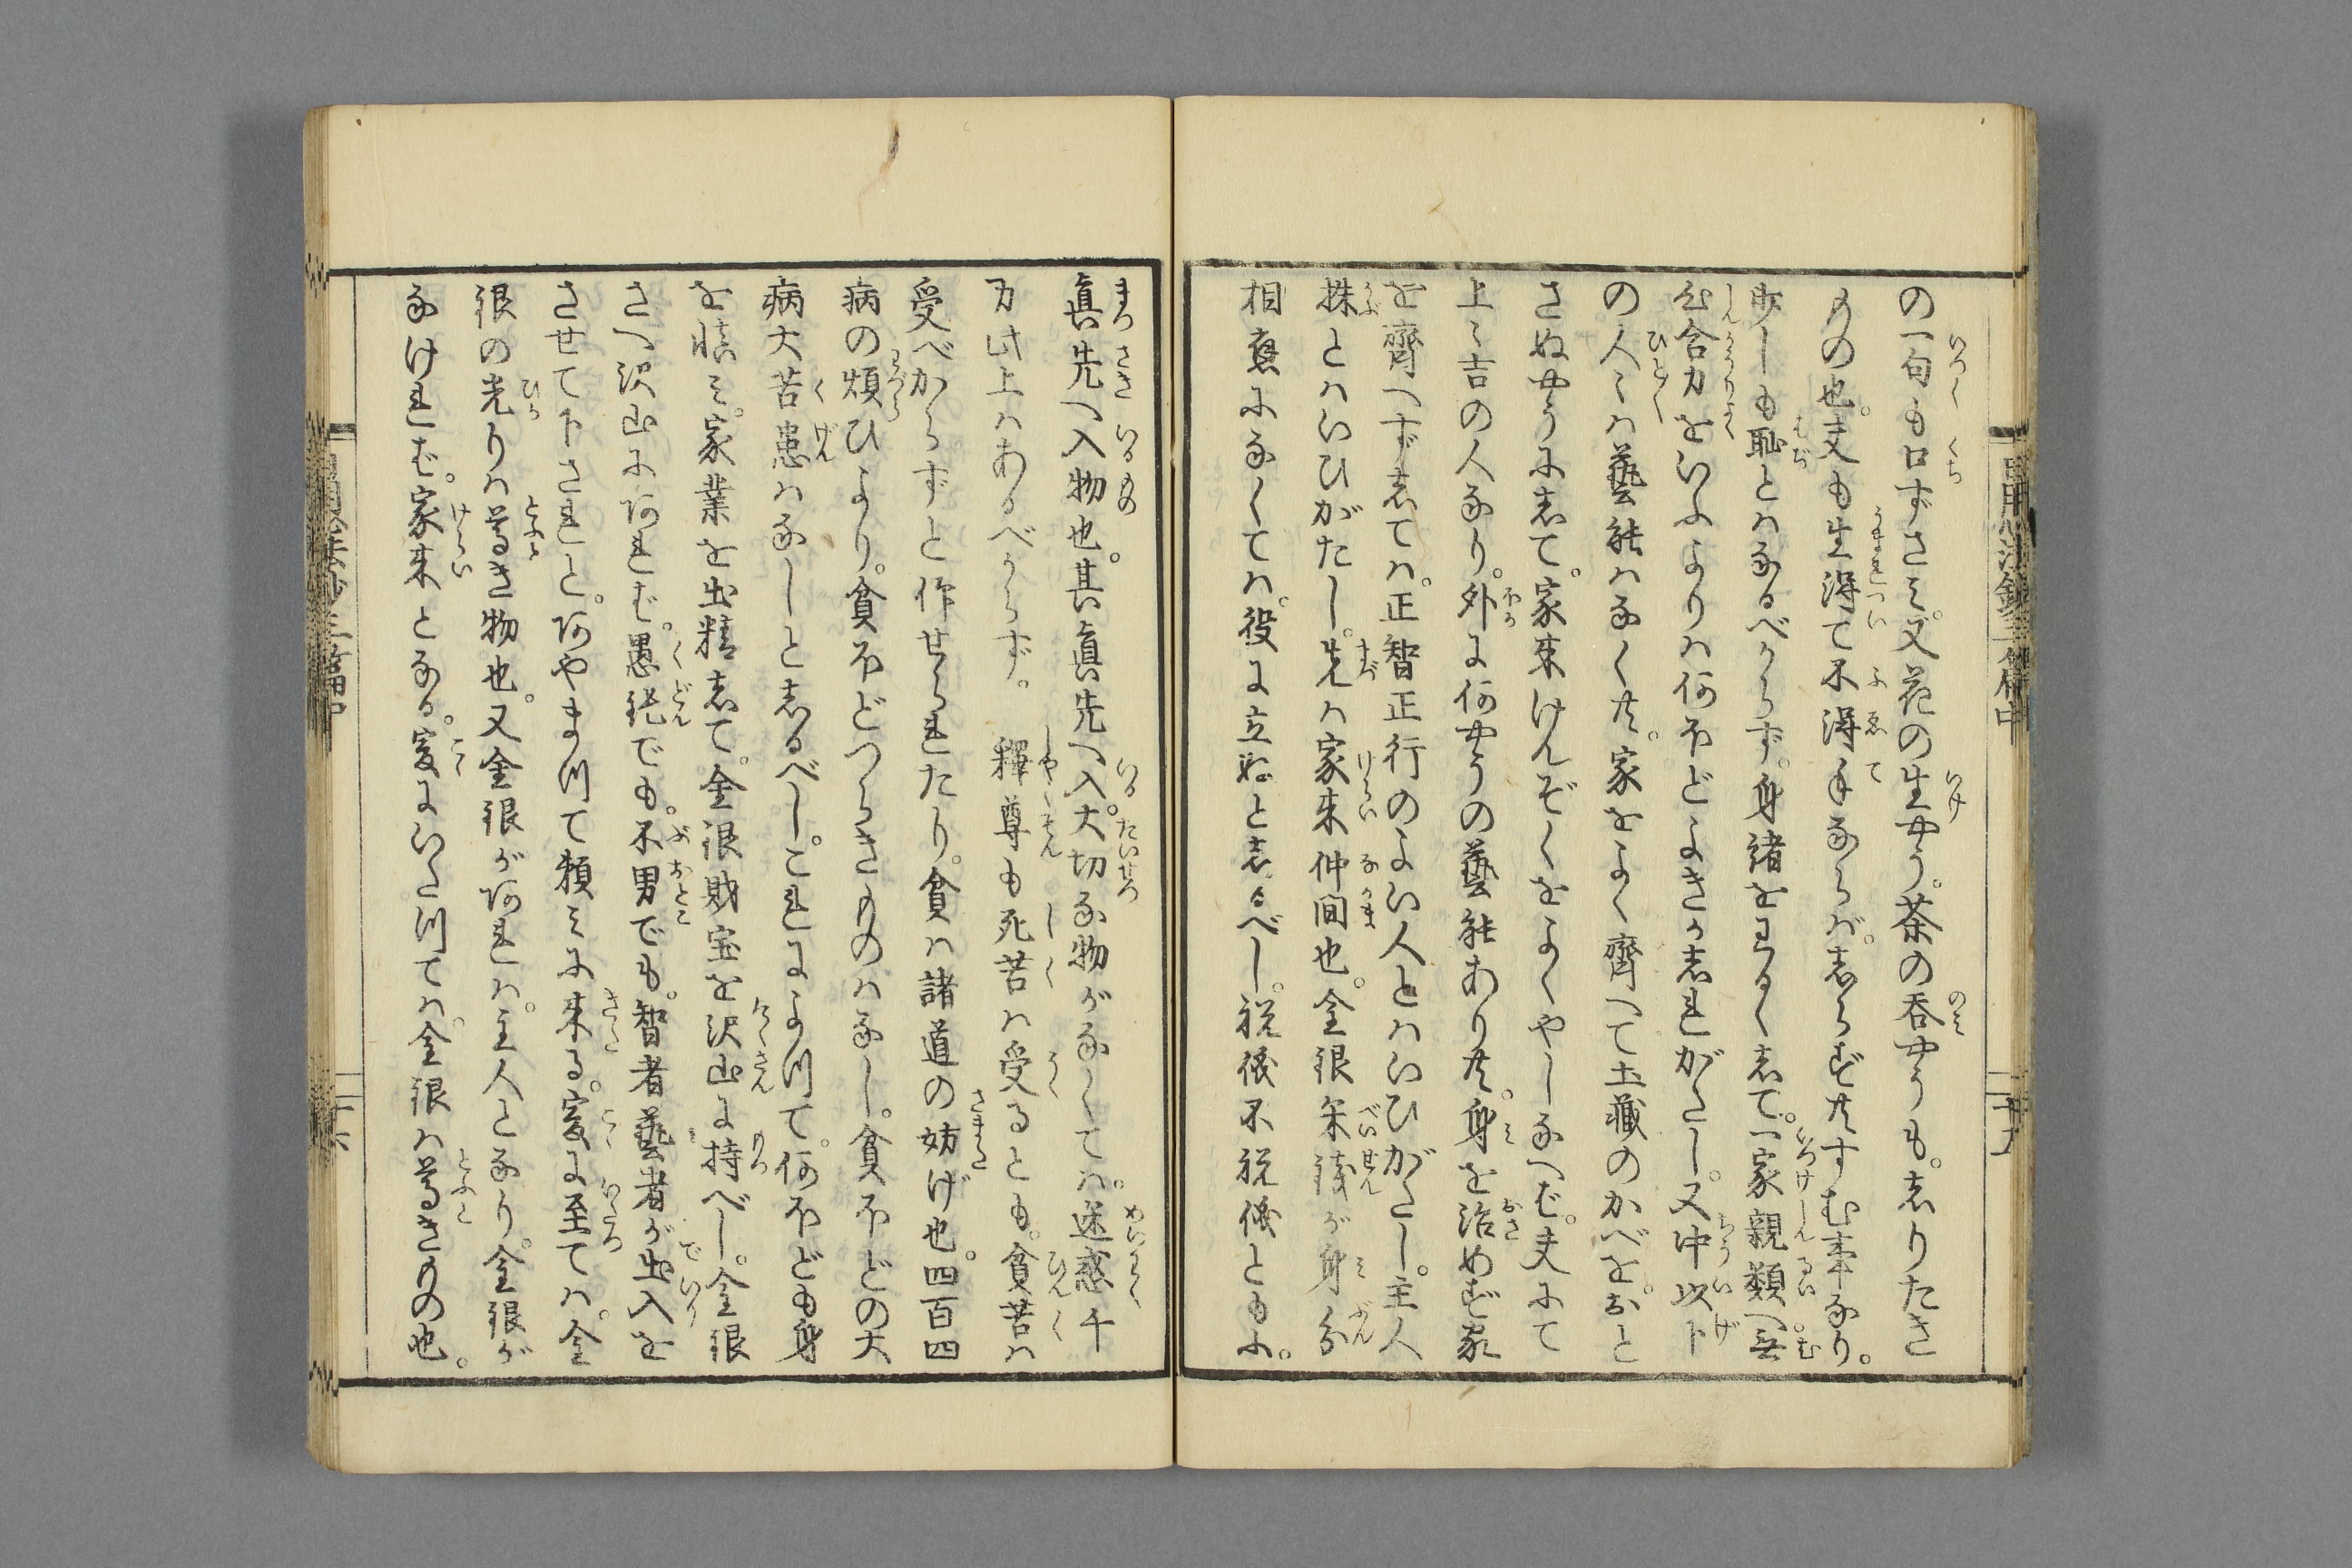 の一句も口ずさミ。又花の生やう。茶の呑やうも。志りたき
ものゝ也。夫も生得て不得手ならバ。志らず共すむ事なり。
少しも恥とハなるべからず。身緒をわるく志て。一家親類へ無
心合力をいふよりハ何ほどよきか志れがたし。又中以下
の人〻ハ藝能ハなく共。家をよく齊へて土藏のかべを。おと
さぬやうに志て。家来けんぞくをよくやしなへバ。夫にて
上〻吉の人なり。外に何やうの藝能あり共。身を治めず家
を齊へず志てハ。正智正行のよい人とハいひがたし。主人
株とハいひがたし。先ハ家来仲間也。金銀米銭が身分
相應になくてハ。役に立ぬと志るべし。祝儀不祝儀ともに。
眞先へ入物也。其眞先へ入。大切な物がなくてハ。迷惑千
万此上ハあるべからず。釋尊も死苦ハ受るとも。貧苦ハ
受べからずと作せられたり。貧ハ諸道の妨げ也。四百四
病の煩ひより。貧ほどつらきものハなし。貧ほどの大
病大苦患ハなしと志るべし。これによつて。何ほども身
を慎ミ。家業を出精志て。金銀財宝を沢山に持べし。金銀
さへ沢山にあれバ。愚鈍でも。不男でも。智者藝者が出入を
させて下されと。あやまつて頼ミに来る。爰に至てハ。金
銀の光りハ尊き物也。又金銀があれハ。主人となり。金銀が
なけれバ。家来となる。爰にいたつてハ。金銀ハ尊きもの也。